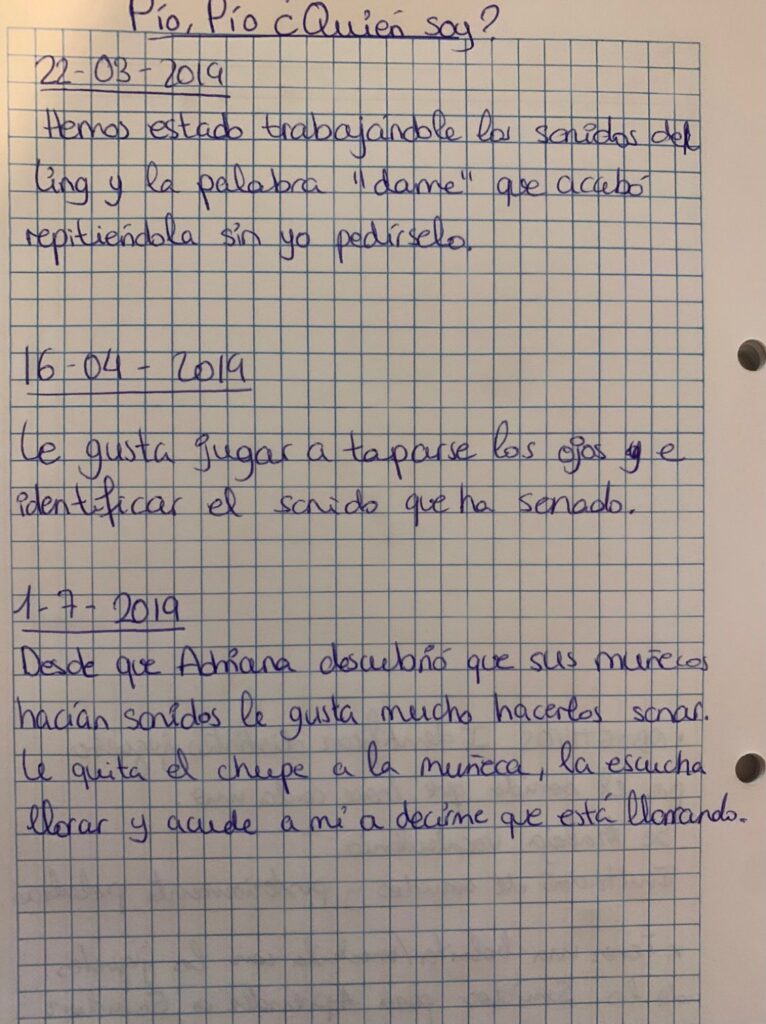 Pío, Pío ¿Quién soy?
22-03-2019
Hemos estado trabajándole los sonidos del
Ling y la palabra "dame" que acabó
repitiéndola sin yo pedírselo.
16-04-2019
Le gusta jugar a taparse los ojos y e
identificar el sonido que ha sonado.
1-7-2019
Desde que Adriana descubrió que sus muñecos
hacían sonidos le gusta mucho hacerlos sonar.
Le quita el chupe a la muñeca, la escucha
llorar y acude a mí a decirme que está llorrando.